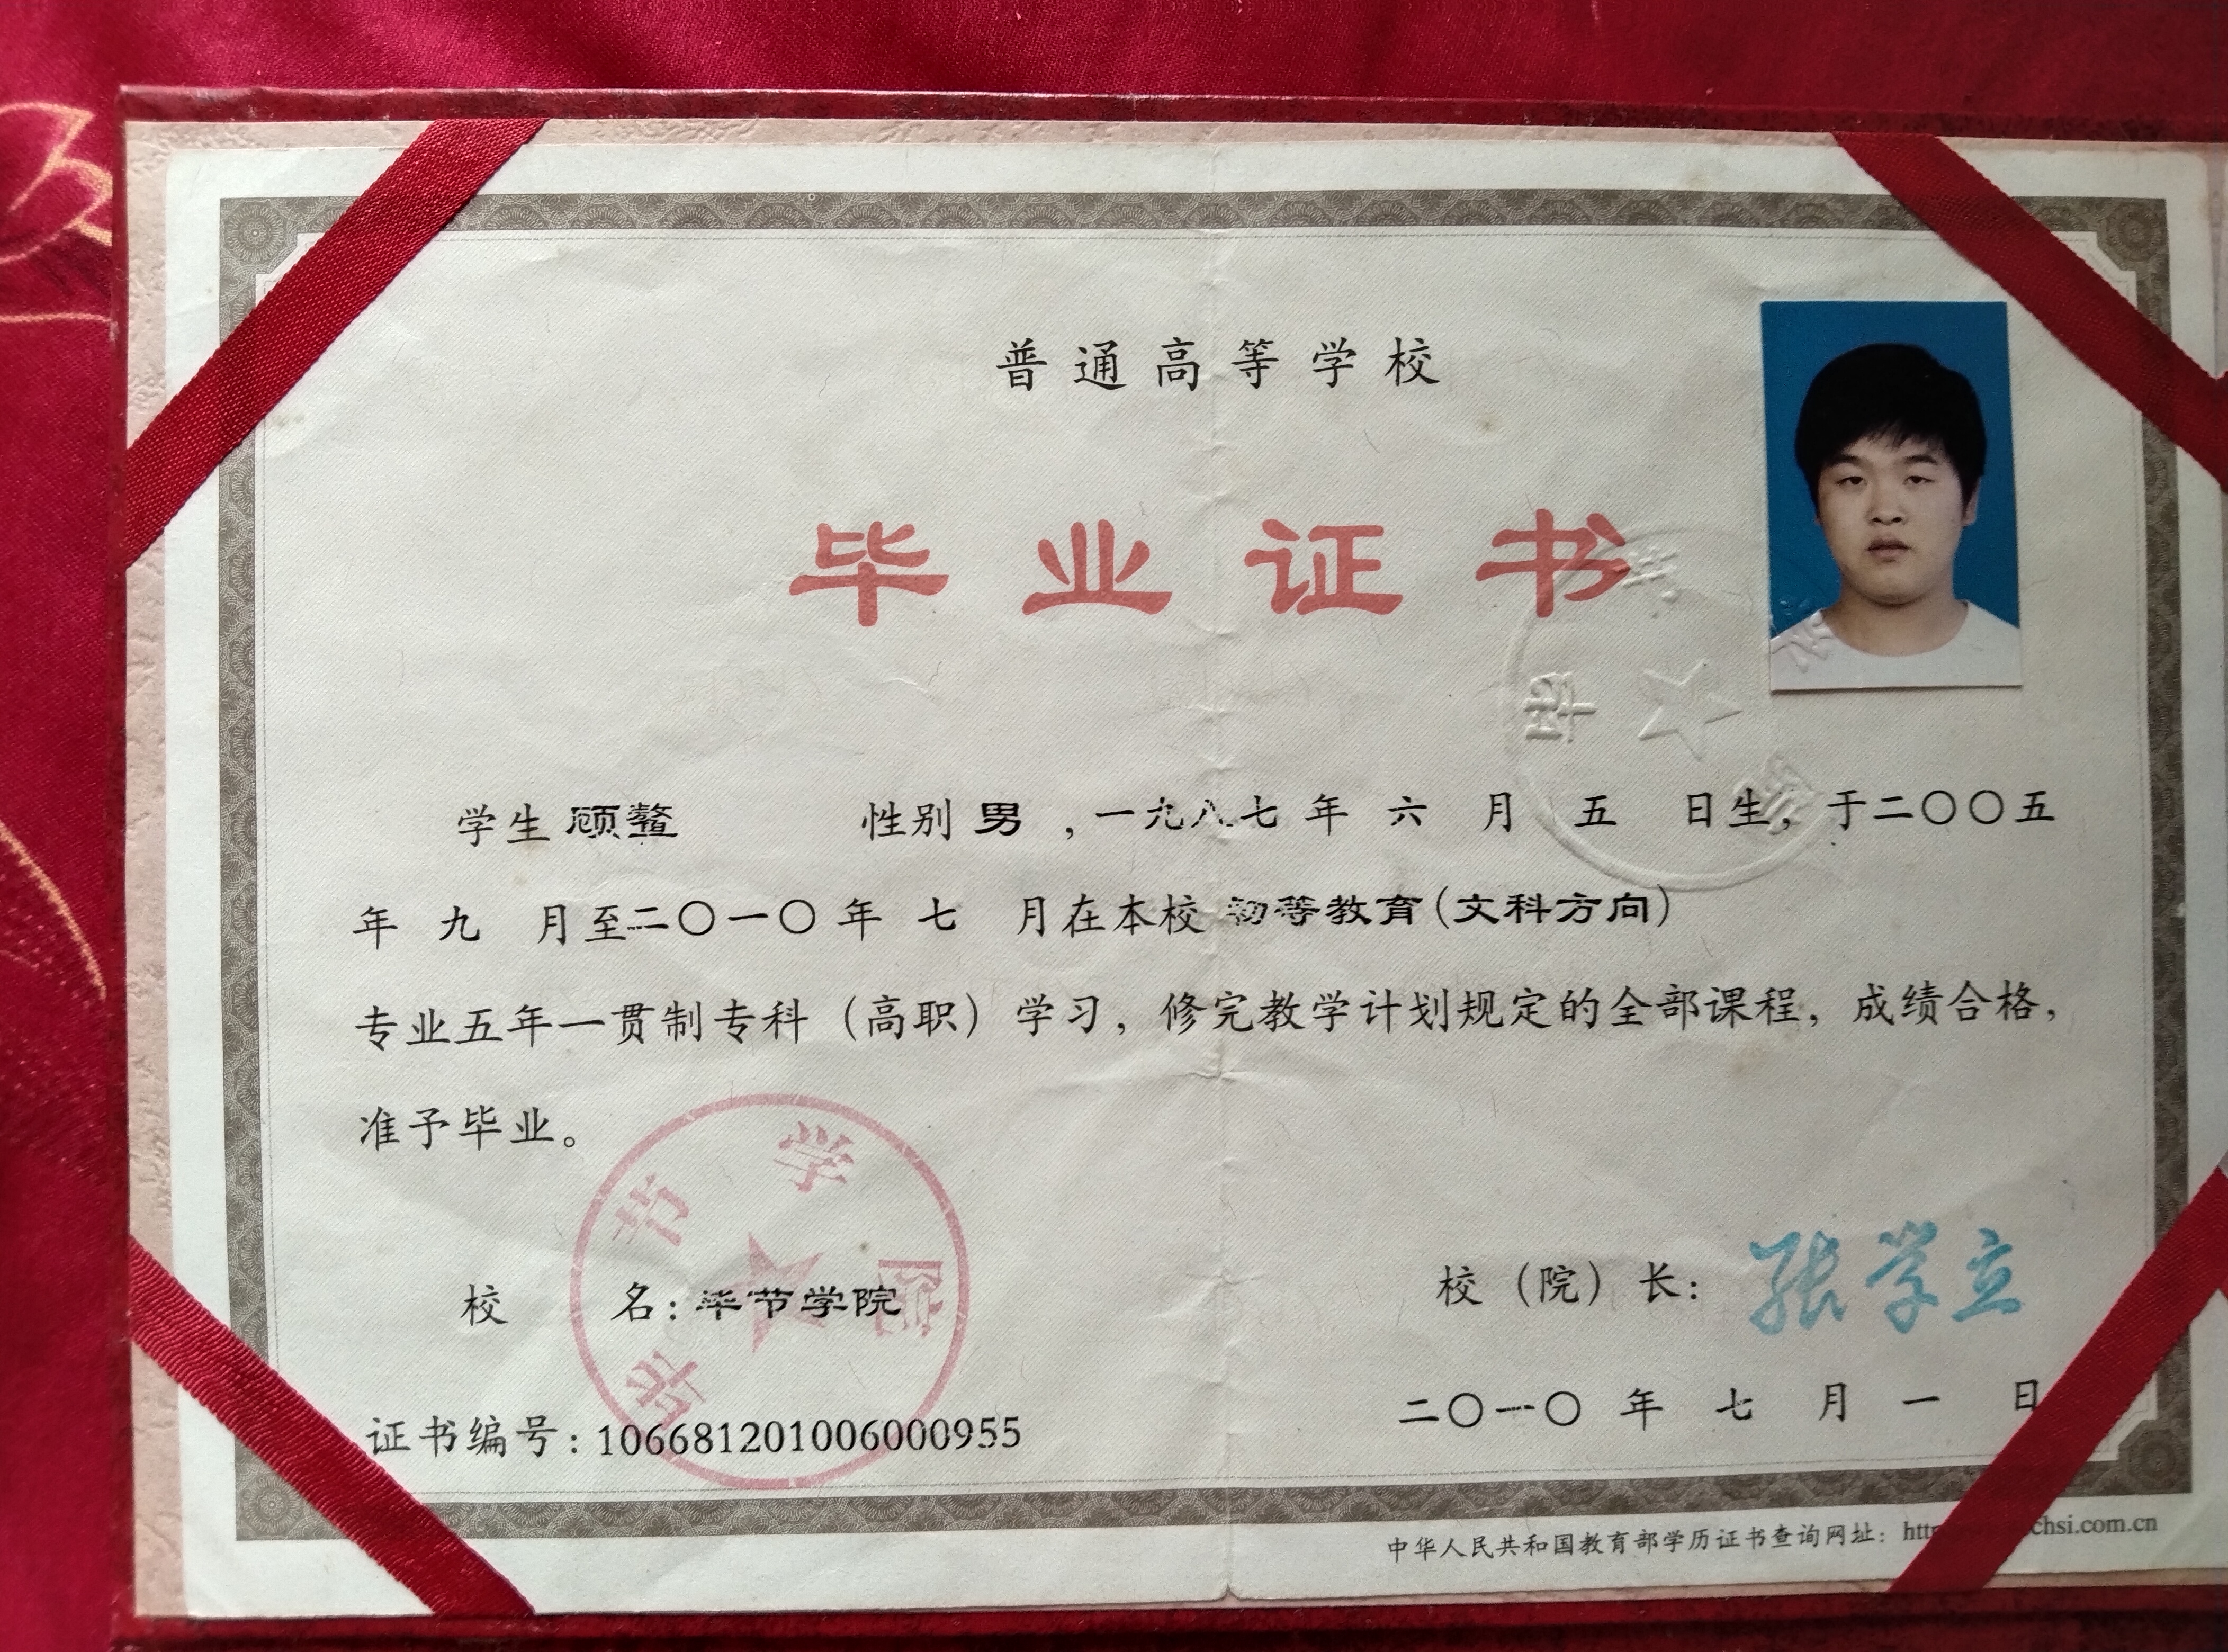 普通高等学校
毕业证书
学生 顾鳌 性别 男 ,一九八七年 六 月 五 日生，于二〇〇五
年 九 月至二〇一〇年 七 月在本校 初等教育(文科方向)
专业五年一贯制专科（高职）学习，修完教学计划规定的全部课程，成绩合格，
准予毕业。
毕节学院
校 名: 毕节学院
校（院）长: 张学立
证书编号: 106681201006000955
二〇一〇 年 七 月 一 日
中华人民共和国教育部学历证书查询网址: chsi.com.cn